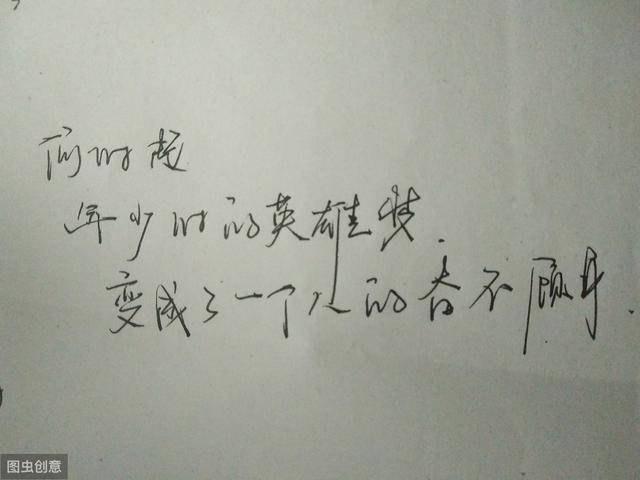 何时起
年少时的英雄梦.
变成了一个人的奋不顾身.
图虫创意